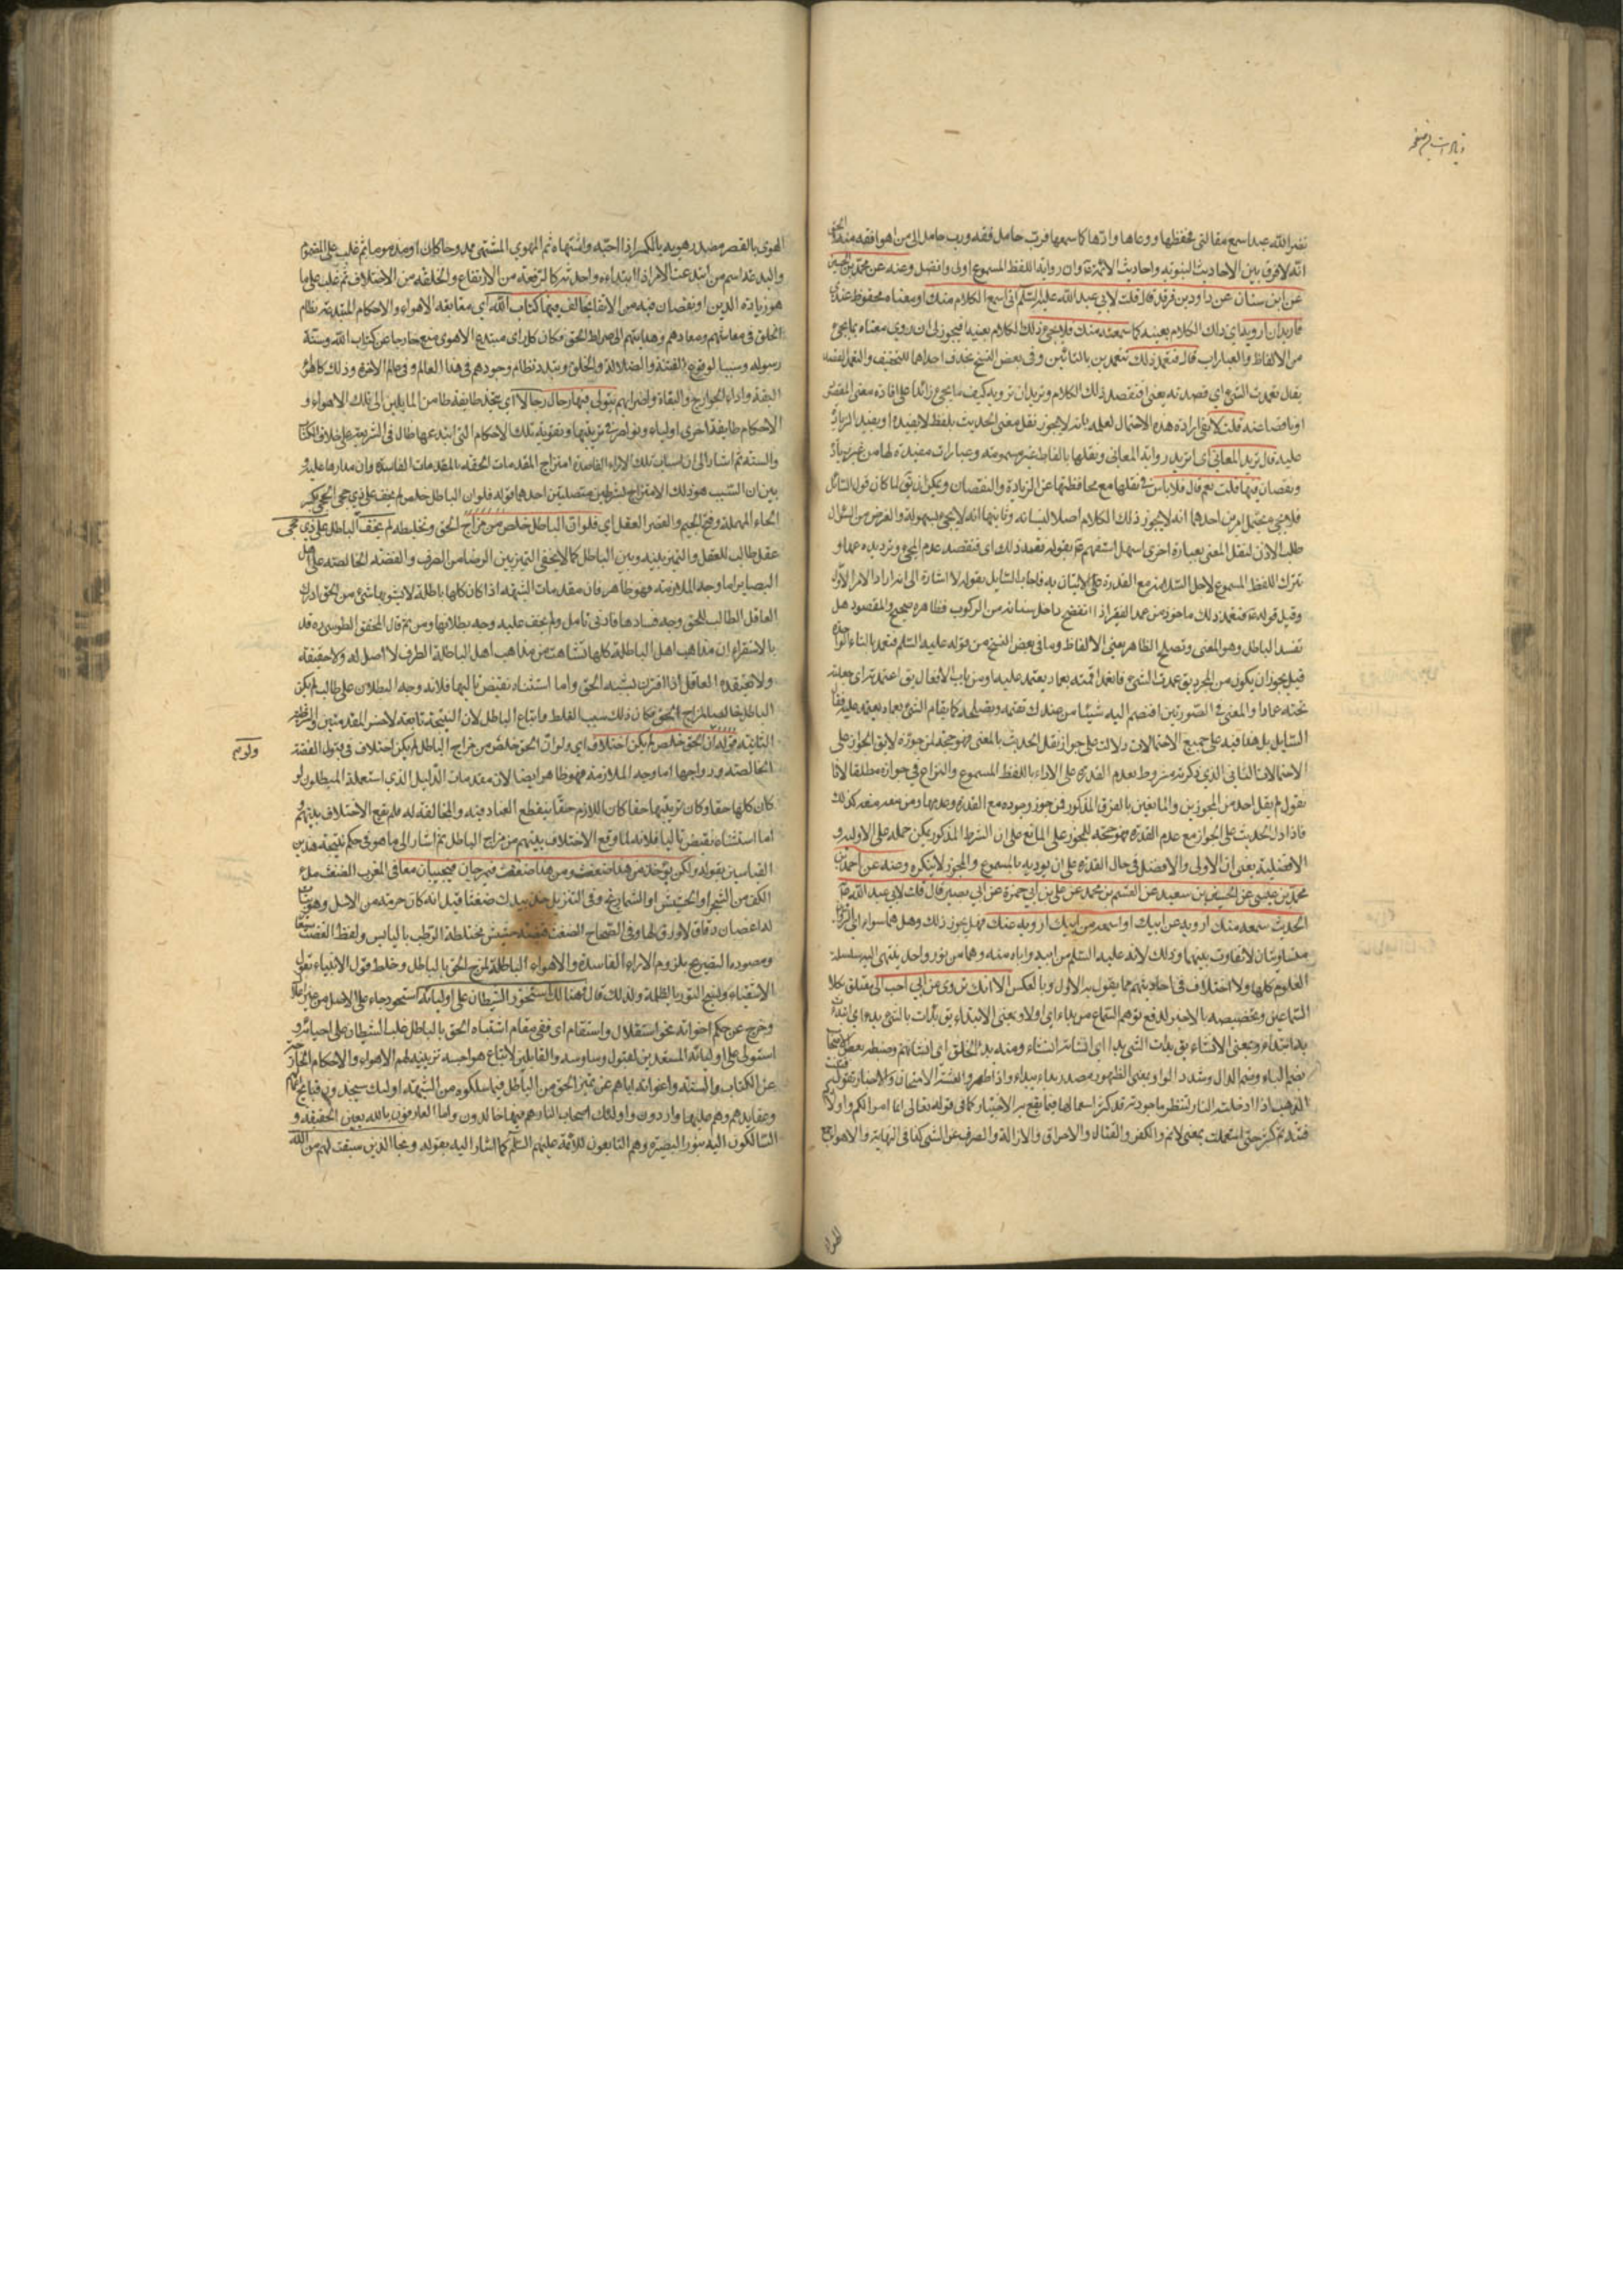 نضر الله عبدا سمع مقالتي فحفظها ووعاها واداها كما سمعها فرب حامل فقه ورب حامل الى من هو افقه منه
انه لا فرق بين الاحاديث النبوية واحاديث الائمة وان رواية اللفظ المسموع اولى وافضل وعنه عن محمد بن الحسين
عن ابن سنان عن داود بن فرقد قال قلت لابي عبد الله عليه السلام اني اسمع الكلام منك او معناه محفوظ عندي
فاريد ان ارويه اي ذلك الكلام بعينه كما سمعته منك فلا يجيء ذلك الكلام بعينه فيجوز لي ان اروي معناه بما يجيء
من الالفاظ والعبارات قال فتعمد ذلك تتعمد بالتائين وفي بعض النسخ بحذف احداهما للتخفيف والتعمد القصد
يقال تعمدت الشيء اي قصدته يعني افتقصد ذلك الكلام وتريد ان ترويه كيف ما يجيء زائدا على افادة معنى المقصود
او ناقصا عنه قلت لا نفى ارادة هذه الاحتمال لعلمه بانه لا يجوز نقل معنى الحديث بلفظ لا يفيده او يفيد الزيادة
عليه قال تريد المعاني اي تريد رواية المعاني ونقلها بالفاظ غير مسموعة وعبارات مفيدة لها من غير زيادة
ونقصان فيها قلت نعم قال فلا باس في نقلها مع محافظتها عن الزيادة والنقصان ويمكن ان يق لما كان قول السائل
فلا يجيء محتمل امرين احدهما انه لا يجوز ذلك الكلام اصلا لنسيانه وثانيهما انه لا يجيء بسهولة والغرض من السؤال
طلب الاذن لنقل المعنى بعبارة اخرى اسهل استفهم ع بقوله تعمد ذلك اي فتقصد عدم المجيء وتريده عمدا و
تترك اللفظ المسموع لاجل السلامة مع القدرة على الاتيان به فاجاب السايل بقوله لا اشارة الى انه اراد الامر الاول
وقيل قوله ع فتعمد ذلك ماخوذ من عمد البعير اذا انفضخ داخل سنامه من الركوب فظاهره صحيح والمقصود هل
تفسد الباطل وهو المعنى وتصلح الظاهر يعني الالفاظ وما في بعض النسخ من قوله عليه السلم فتعمد بالتاء الواحدة
قيل يجوز ان يكون من المجرد يق عمدت الشيء فانعمد اي اقمته بعماد يعتمد عليه ومن باب الافعال يق اعمدته اي جعلت
تحته عمادا والمعنى في الصورتين افتضم اليه شيئا من عندك تقيمه وتصلحه كما يقام الشيء بعماد يعتمد عليه فقال
السايل بل هذا فيه على جميع الاحتمالات دلالة على جواز نقل الحديث بالمعنى فهو حجة لمن جوزه لا يق الجواز على
الاحتمالات الثاني الذي ذكرته مشروط بعدم القدرة على الاداء باللفظ المسموع والنزاع في جوازه مطلقا لانا
نقول لم يقل احد من المجوزين والمانعين بالفرق المذكور فمن جوز وجوزه مع القدرة وعدمها ومن منعه منعه كذلك
فاذا دل الحديث على الجواز مع عدم القدرة فهو حجة للمجوز على المانع على ان الشرط المذكور يمكن حمله على الاولية و
الافضلية يعني ان الاولى والافضل في حال القدرة على ان يوديه بالمسموع والمجوز لا ينكره وعنه عن احمد بن
محمد بن عيسى عن الحسين بن سعيد عن القسم بن محمد عن علي بن ابي حمزة عن ابي بصير قال قلت لابي عبد الله ع
الحديث سمعه منك ارويه عن ابيك او اسمعه من ابيك ارويه عنك فهل يجوز ذلك وهل هما سواء
متساويتان لا تفاوت بينهما وذلك لانه عليه السلم من ابيه واباه منه وهما من نور واحد ينتهي اليه سلسلة
العلوم كلها ولا اختلاف في احاديثهم مما يقول به الاول وبالعكس الا انك تروي عن ابي احب الى يتعلق بكلا
السماعين وتخصيصه بالاخير لدفع توهم السماع من
بدات ابتداء وبمعنى الانشاء يق بدات الشيء بدءا اي انشاته انشاء ومنه بدء الخلق اي انشائهم
بضم الباء وضم الدال وشد الواو بمعنى الظهور مصدر
الذهب اذا ادخلته النار لتنظر ما جودته قد كثر استعمالها فيما يقع به الاختبار كما في قوله تعالى انما اموالكم واولادكم
فتنة ثم كثر حتى استعملت بمعنى الاثم والكفر والقتال والاحراق والازالة والصرف عن الشيء كذا في النهاية والاهواء جمع
الهوى بالقصر مصدر هويه بالكسر اذا احبه واشتهاه ثم المهوي المشتهى محمودا كان او مذموما ثم غلب على المذموم
والبدعة اسم من ابتدع الامر اذا ابتداه واحدثه كالرفعة من الارتفاع والخلفة من الاختلاف ثم غلب على ما
هو زيادة الدين او نقصان فيه من الايمة يخالف فيها كتاب الله اي متابعة الاهواء والاحكام المبتدعة نظام
الخلق في معاشهم ومعادهم وهدايتهم الى صراط الحق فكان كل راى مبتدع الاهوى متبع خارجا عن كتاب الله وسنة
رسوله وسببا لوقوع الفتنة والضلالة والخلق وتبدد نظام وجودهم في هذا العالم وفي عالم الاخرة وذلك كاهل
البغي واراء الخوارج والبغاة واضرابهم يتولى فيها رجال رجالا اي يتخذ طايفة طايفة من المايلين الى تلك الاهواء و
الاحكام طايفة اخرى اولياء ونواصر في تربيتها وتقوية تلك الاحكام التي ابتدعها ضال في الشريعة على خلاف الكتاب
والسنة ثم اشار الى ان اسباب تلك الاراء الفاسدة امتزاج المقدمات الحقة بالمقدمات الفاسدة وان مدارها عليه و
بين ان السبب هو ذلك الامتزاج بشرطين متصلتين احدهما قوله فلو ان الباطل خلص لم يخف على ذي حجى الحجى بكسر
الحاء المهملة وفتح الجيم والقصر العقل اي فلو ان الباطل خلص من مزاج الحق وتخليطه لم يخف الباطل على ذي حجى
عقل طالب للعقل والتميز بينه وبين الباطل كما لا يخفى التميز بين الرصاص الصرف والفضة الخالصة على اهل
البصاير اما وجه الملازمة فهو ظاهر فان مقدمات الشبهة اذا كان كلها باطلة لا يشوبها شيء من الحق ادرك
العاقل الطالب للحق وجه فسادها بادنى تامل ولم يخف عليه وجه بطلانها ومن ثم قال المحقق الطوسي ره قد
بالاستقراء ان مذاهب اهل الباطلة كلها نشات من مذاهب اهل الباطلة الطرف لا اصل له ولا حقيقة
ولا يعتقده العاقل اذا اقترن بشبه الحق واما استثناء نقيض تاليها فلانه وجه البطلان على طالب لم يكن
الباطل خالصا لمزاج الحق فكان ذلك سبب الغلط واتباع الباطل لان النتيجة تابعة لاخس المقدمتين
الثانية قوله ولو ان الحق خلص لم يكن اختلاف اي ولو ان الحق خلص من مزاج الباطل لم يكن اختلاف في قبول الفضة
ولو
الخالصة ورواجها اما وجه الملازمة فهو ظاهر ايضا لان مقدمات الدليل الذي استعمله المبطلون لو
كان كلها حقا وكان ترتيبها حقا كان اللازم حقا ينقطع العناد فيه والمخالفة له فلم يقع الاختلاف بينهم
اما استثناء نقيض تاليها فلانه لما وقع الاختلاف بينهم من مزاج الباطل ثم اشار الى ما هو في حكم نتيجة هذين
القياسين بقوله ولكن يؤخذ من هذا ضغث ومن هذا ضغث فيمزجان فيجيئان معا في المغرب الضغث ملء
الكف من الشجر او الحشيش او الشماريخ وفي التنزيل خذ بيدك ضغثا قيل انه كان حزمة من الاسل وهو نبات
له اغصان دقاق لا ورق لها وفي الصحاح الضغث قبضة حشيش مختلطة الرطب باليابس ولفظ الضغث
ومقصوده التصريح بلزوم الاراء الفاسدة والاهواء الباطلة لمزج الحق بالباطل وخلط قول الانبياء بقول
الاشقياء ونسج النور بالظلمة ولذلك قال فهنالك استحوذ الشيطان على اوليائه استحوذ جاء على الاصل من غير اعلال
وخرج عن حكم اخواته نحو استقلال واستقام اي ففي مقام اشتباه الحق بالباطل غلب الشيطان على احبائه و
استولى على اوليائه المستعدين لقبول وساوسه والقابلين لاتباع هواجسه تزيينه لهم الاهواء والاحكام الخارجة
عن الكتاب والسنة واغوائه اياهم عن تميز الحق من الباطل فيما سلكوه من الشبهة اولئك سيجدون قبايح
وعقايدهم وهم عليها واردون واولئك اصحاب النار هم فيها خالدون واما العارفون بالله بعين الحقيقة و
السالكون اليه بنور البصيرة وهم التابعون للائمة عليهم السلم كما اشار اليه بقوله ونجا الذين سبقت لهم من الله